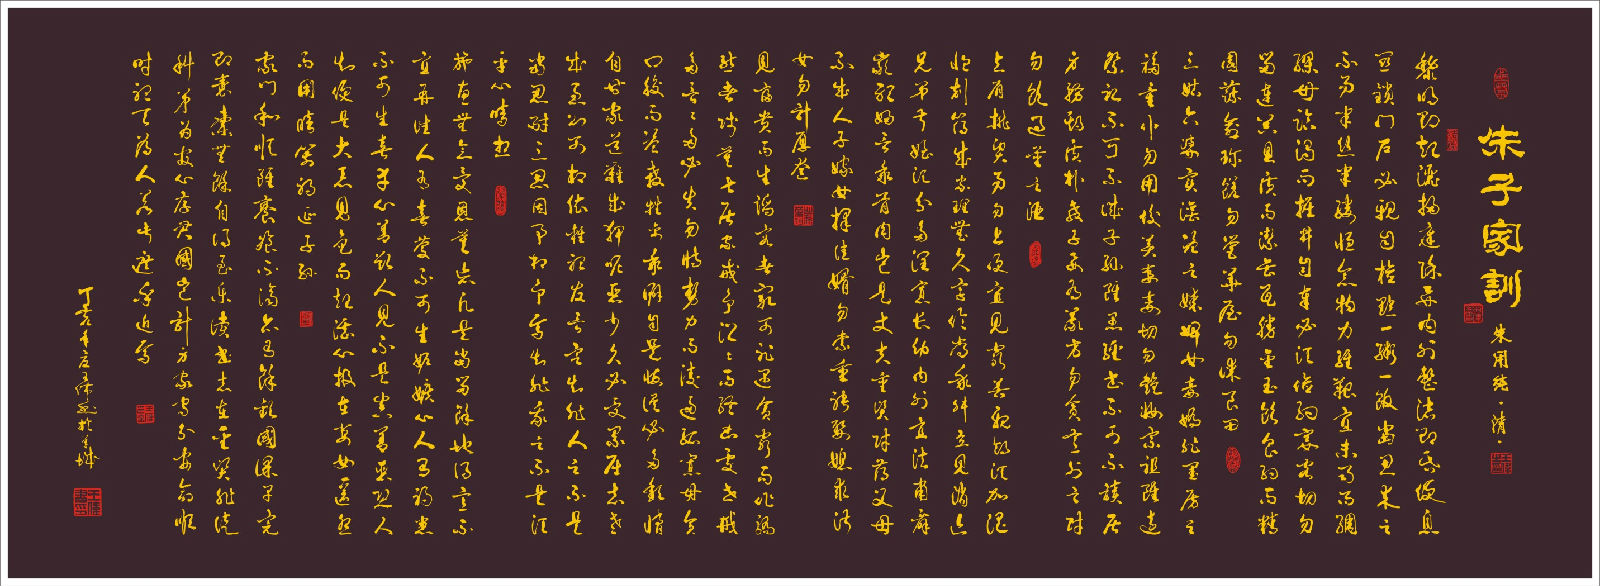 朱子家訓
朱用純·清·
黎明即起灑掃庭除要内外整潔既昏便息
関鎖門户必親自檢點一粥一飯當思来之
不易半絲半縷恒念物力維艱宜未雨而綢
繆毋臨渴而掘井自奉必須儉約宴客切勿
留連器具質而潔缶瓦勝金玉飲食約而精
園蔬愈珍饈勿營華屋勿謀良田
三姑六婆實淫盗之媒婢女妾嬌非閨房之
福童仆勿用俊美妻妾切勿艷妝宗祖雖遠
祭祀不可不誠子孫雖愚經書不可不讀居
身務期質朴教子要有義方勿貪意外之財
勿飲過量之酒
與肩挑貿易勿占便宜見窮苦親鄰須加温
恤刻薄成家理無久享倫常乖舛立見消亡
兄弟叔姪須分多潤寡長幼内外宜法肅辭
嚴聽婦言乖骨肉豈是丈夫重資財薄父母
不成人子嫁女擇佳婿勿索重聘娶媳求淑
女勿計厚奩
見富貴而生諂容者最可恥遇貧窮而作驕
態者賤莫甚居家戒争訟訟而終凶處世戒
多言言多必失勿恃勢力而凌逼孤寡毋貪
口腹而恣殺牲禽乖僻自是悔誤必多頹惰
自甘家道難成狎昵惡少久必受累屈志老
成急則可相依輕聽發言安知非人之不是
當思耐三思因事相争安知非我之不是須
平心暗想
施惠無念受恩莫忘凡是當留餘地得意不
宜再往人有喜慶不可生妒嫉心人有禍患
不可生喜幸心善欲人見不是真善惡恐人
知便是大惡見色而起淫心報在妻女匿怨
而用暗箭禍延子孫
家門和順雖饔飧不濟亦有餘歡國課早完
即囊橐無餘自得至樂讀書志在聖賢非徒
科第為官心存君國豈計身家守分安命順
時聽天為人若此庶乎近焉
丁亥年於羊城